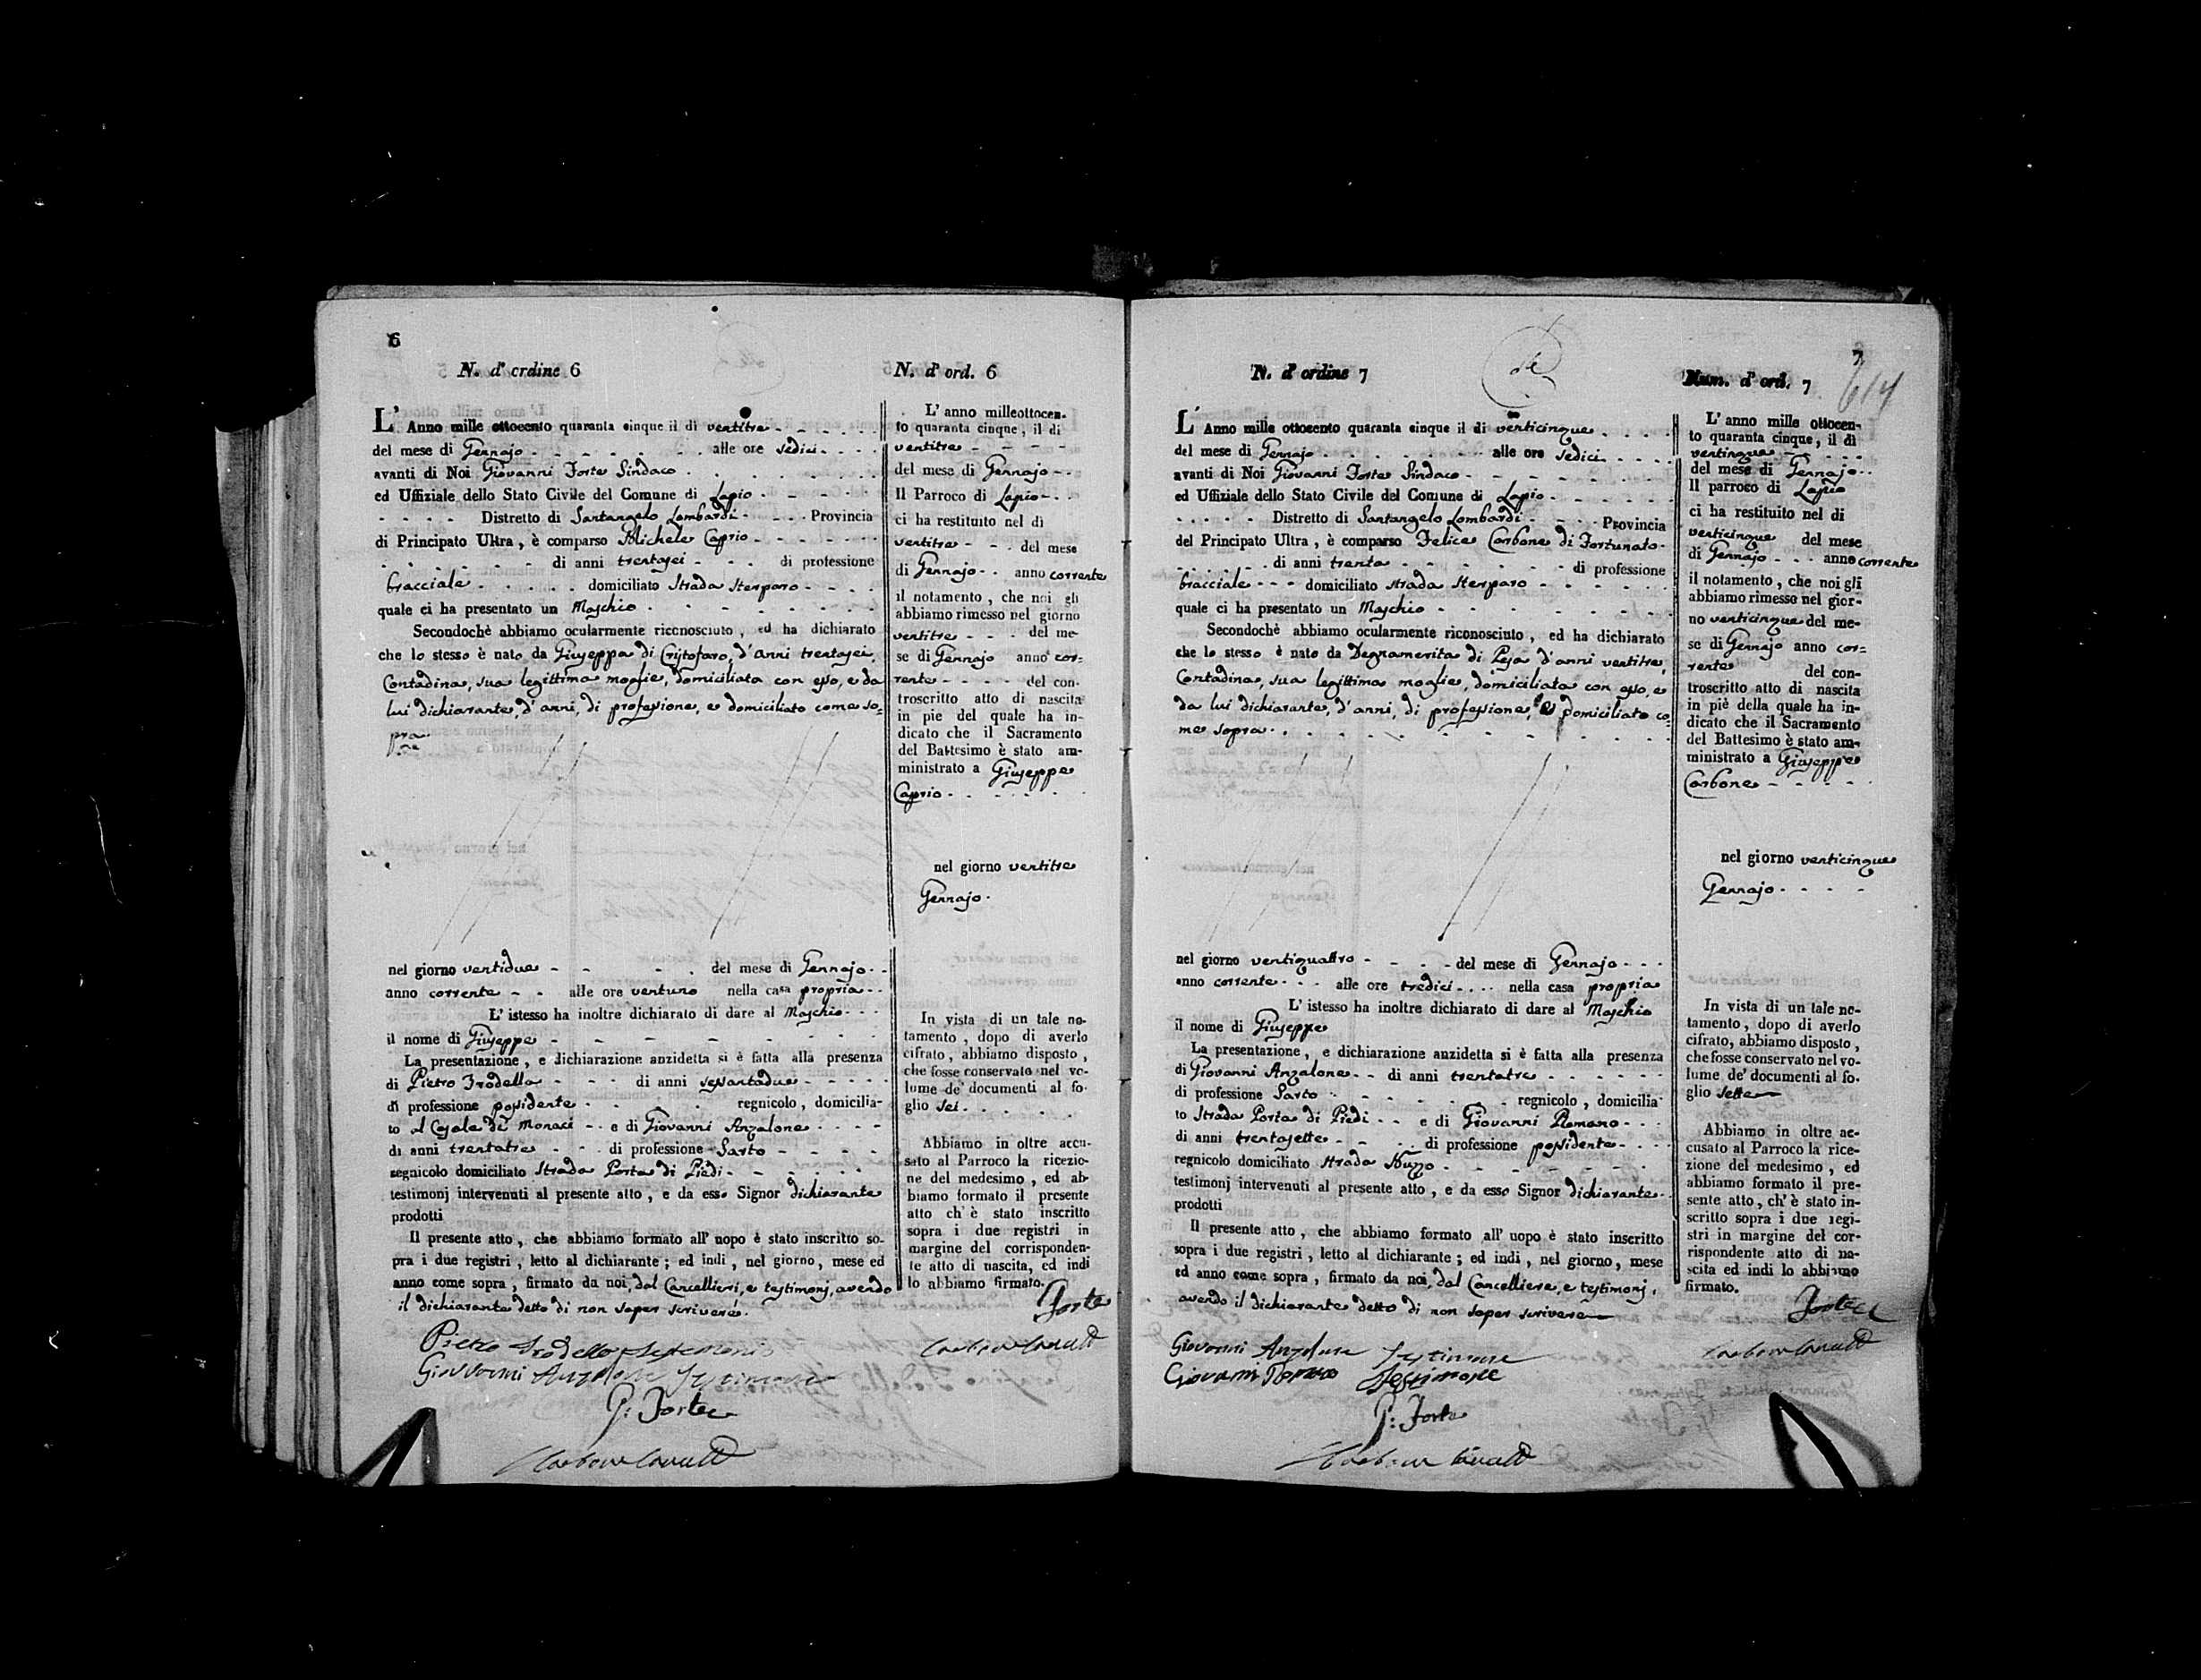 6
N. d'ordine 6
L'Anno mille ottocento quaranta cinque il di ventitre
del mese di Gennajo alle ore sedici
avanti di Noi Giovanni Forte Sindaco
ed Uffiziale dello Stato Civile del Comune di Lapio
Distretto di Santangelo Lombardi Provincia
di Principato Ultra, è comparso Michele Caprio
di anni trentasei di professione
bracciale domiciliato Strada Sterparo
quale ci ha presentato un Maschio
Secondochè abbiamo ocularmente riconosciuto, ed ha dichiarato
che lo stesso è nato da Giuseppa di Cristofaro, d'anni trentasei,
Contadina, sua legittima moglie, domiciliata con esso, e da
lui dichiarante, d'anni, di professione, e domiciliato come so=
pra
nel giorno ventidue del mese di Gennajo
anno corrente alle ore ventuno nella casa propria
L'istesso ha inoltre dichiarato di dare al Maschio
il nome di Giuseppe
La presentazione, e dichiarazione anzidetta si è fatta alla presenza
di Pietro Trodella di anni sessantadue
di professione possidente regnicolo, domicilia-
to al Casale di Monaci e di Giovanni Anzalone
di anni trentatre di professione Sarto
regnicolo domiciliato Strada Porta di Piedi
testimonj intervenuti al presente atto, e da esso Signor dichiarante
prodotti
Il presente atto, che abbiamo formato all'uopo è stato inscritto so-
pra i due registri, letto al dichiarante; ed indi, nel giorno, mese ed
anno come sopra, firmato da noi, dal Cancellieri, e testimonj, avendo
il dichiarante detto di non saper scrivere.
Pietro Trodella testimonio
Giovanni Anzalone Testimone
G: Forte
N. d'ord. 6
L'anno milleottocen-
to quaranta cinque, il di
ventitre
del mese di Gennajo
Il Parroco di Lapio
ci ha restituito nel dì
ventitre del mese
di Gennajo anno corrente
il notamento, che noi gli
abbiamo rimesso nel giorno
ventitre del me-
se di Gennajo anno cor=
rente del con-
troscritto atto di nascita
in piè del quale ha in-
dicato che il Sacramento
del Battesimo è stato am-
ministrato a Giuseppe
Caprio
nel giorno ventitre
Gennajo.
In vista di un tale no-
tamento, dopo di averlo
cifrato, abbiamo disposto,
che fosse conservato nel vo-
lume de' documenti al fo-
glio sei
Abbiamo in oltre accu-
sato al Parroco la ricezio-
ne del medesimo, ed ab-
biamo formato il presente
atto ch'è stato inscritto
sopra i due registri in
margine del corrisponden-
te atto di nascita, ed indi
lo abbiamo firmato.
Forte
7
614
N. d'ordine 7
L'Anno mille ottocento quaranta cinque il di venticinque
del mese di Gennajo alle ore sedici
avanti di Noi Giovanni Forte Sindaco
ed Uffiziale dello Stato Civile del Comune di Lapio
Distretto di Santangelo Lombardi Provincia
del Principato Ultra, è comparso Felice Carbone di Fortunato
di anni trenta di professione
bracciale domiciliato Strada Sterparo
quale ci ha presentato un Maschio
Secondochè abbiamo ocularmente riconosciuto, ed ha dichiarato
che lo stesso è nato da Degnamerita di Pesa d'anni ventitre,
Contadina, sua legittima moglie, domiciliata con esso, e
da lui dichiarante, d'anni, di professione, e domiciliato co=
me sopra
nel giorno ventiquattro del mese di Gennajo
anno corrente alle ore tredici nella casa propria
L'istesso ha inoltre dichiarato di dare al Maschio
il nome di Giuseppe
La presentazione, e dichiarazione anzidetta si è fatta alla presenza
di Giovanni Anzalone di anni trentatre
di professione Sarto regnicolo, domicilia-
to Strada Porta di Piedi e di Giovanni Romano
di anni trentasette di professione possidente
regnicolo domiciliato strada
testimonj intervenuti al presente atto, e da esso Signor dichiarante
prodotti
Il presente atto, che abbiamo formato all'uopo è stato inscritto
sopra i due registri, letto al dichiarante; ed indi, nel giorno, mese
ed anno come sopra, firmato da noi, dal Cancelliere, e testimonj,
avendo il dichiarante detto di non saper scrivere
Giovanni Anzalone Testimone
Giovanni Romano Testimone
G: Forte
Num. d'ord. 7
L'anno mille ottocen-
to quaranta cinque, il di
venticinque
del mese di Gennajo
Il parroco di Lapio
ci ha restituito nel di
venticinque del mese
di Gennajo anno corrente
il notamento, che noi gli
abbiamo rimesso nel gior-
no venticinque del me-
se di Gennajo anno cor=
rente del con-
troscritto atto di nascita
in piè della quale ha in-
dicato che il Sacramento
del Battesimo è stato am-
ministrato a Giuseppe
Carbone
nel giorno venticinque
Gennajo
In vista di un tale no-
tamento, dopo di averlo
cifrato, abbiamo disposto,
che fosse conservato nel vo-
lume de' documenti al fo-
glio sette
Abbiamo in oltre ac-
cusato al Parroco la rice-
zione del medesimo, ed
abbiamo formato il pre-
sente atto, ch'è stato in-
scritto sopra i due regi-
stri in margine del cor-
rispondente atto di na-
scita ed indi lo abbiamo
firmato.
Forte